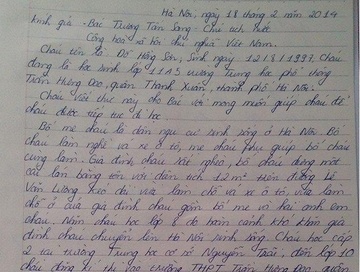 Hà Nội, ngày 18 tháng 2 năm 2014
Kính gửi - Bác Trương Tấn Sang. Chủ tịch nước
Cộng hoà xã hội chủ nghĩa Việt Nam.
Cháu tên là: Đỗ Hồng Sơn, Sinh ngày 12/8/1997. Cháu
đang là học sinh lớp 11A5 trường Trung học phổ thông
Trần Hưng Đạo, quận Thanh Xuân, thành phố Hà Nội.
Cháu viết thư này cho Bác với mong muốn giúp cháu để
cháu được tiếp tục đi học.
Bố mẹ cháu là dân ngụ cư sinh sống ở Hà Nội. Bố
cháu làm nghề vá xe ô tô, mẹ cháu phụ giúp bố cháu
cùng làm. Gia đình cháu rất nghèo, bố cháu dựng một
cái lán bằng tôn với diện tích 12m² trên đường Lê
Văn Lương kéo dài vừa làm chỗ vá xe ô tô, vừa làm
chỗ ở của gia đình cháu gồm bố mẹ và hai anh em
cháu. Năm cháu học lớp 8 do hoàn cảnh khó khăn gia
đình cháu chuyển lên Hà Nội sinh sống. Cháu học cấp
2 tại trường Trung học cơ sở Nguyễn Trãi, đến lớp 10
cháu đăng kí thi vào trường THPT Trần Hưng Đạo, quận